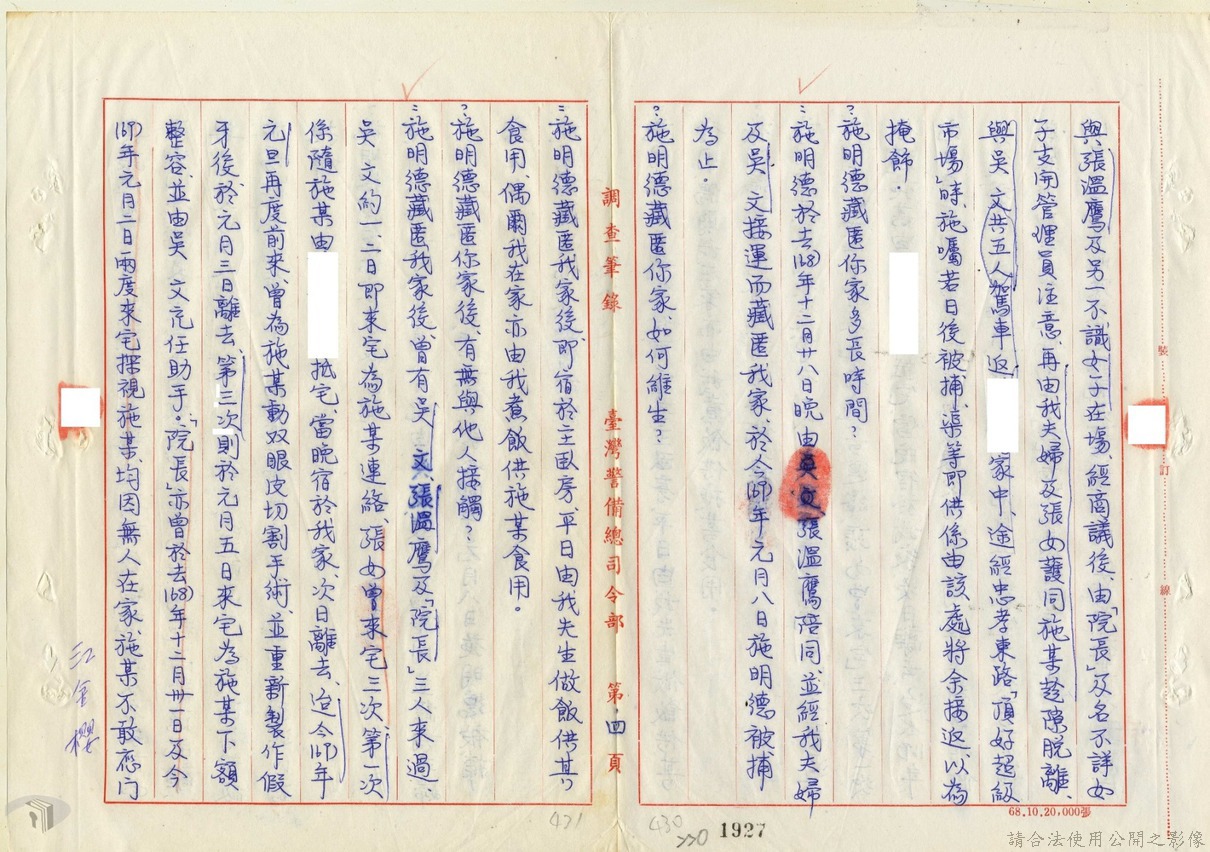 與張溫鷹及另一不識女子在場、經商議後、由「院長」及名不詳女
子支開管理員注意、再由我夫婦及張女護同施某趁隙脫離、
與吳 文共五人駕車返 家中、途經忠孝東路「頂好超級
市場」時、施囑若日後被捕、渠等即供係由該處將余接返、以為
掩飾.
?施明德藏匿你家多長時間?
:施明德於去(68)年十二月廿八日晚由吳 文、張溫鷹陪同、並經我夫婦
及吳 文接運而藏匿我家、於今(69)年元月八日施明德被捕
為止.
?施明德藏匿你家如何維生?
調查筆錄 臺灣警備總司令部 第四頁
:施明德藏匿我家後、即宿於主臥房、平日由我先生做飯供其
食用、偶爾我在家亦由我煮飯供施某食用.
?施明德藏匿你家後、有無與他人接觸?
:施明德藏匿我家後、曾有吳 文、張溫鷹及「院長」三人來過、
吳 文約一、二日即來宅為施某連絡、張女曾來宅三次、第一次
係隨施某由 抵宅、當晚宿於我家、次日離去、迨今(69)年
元旦再度前來、曾為施某動双眼皮切割手術、並重新製作假
牙後、於元月三日離去、第三次則於元月五日來宅為施某下額
整容、並由吳 文充任助手.「院長」亦曾於去(68)年十二月卅一日及今
(69)年元月二日兩度來宅探視施某、均因無人在家、施某不敢應門
裝
訂
線
68.10.20,000張
江金櫻
421
430
1927
請合法使用公開之影像